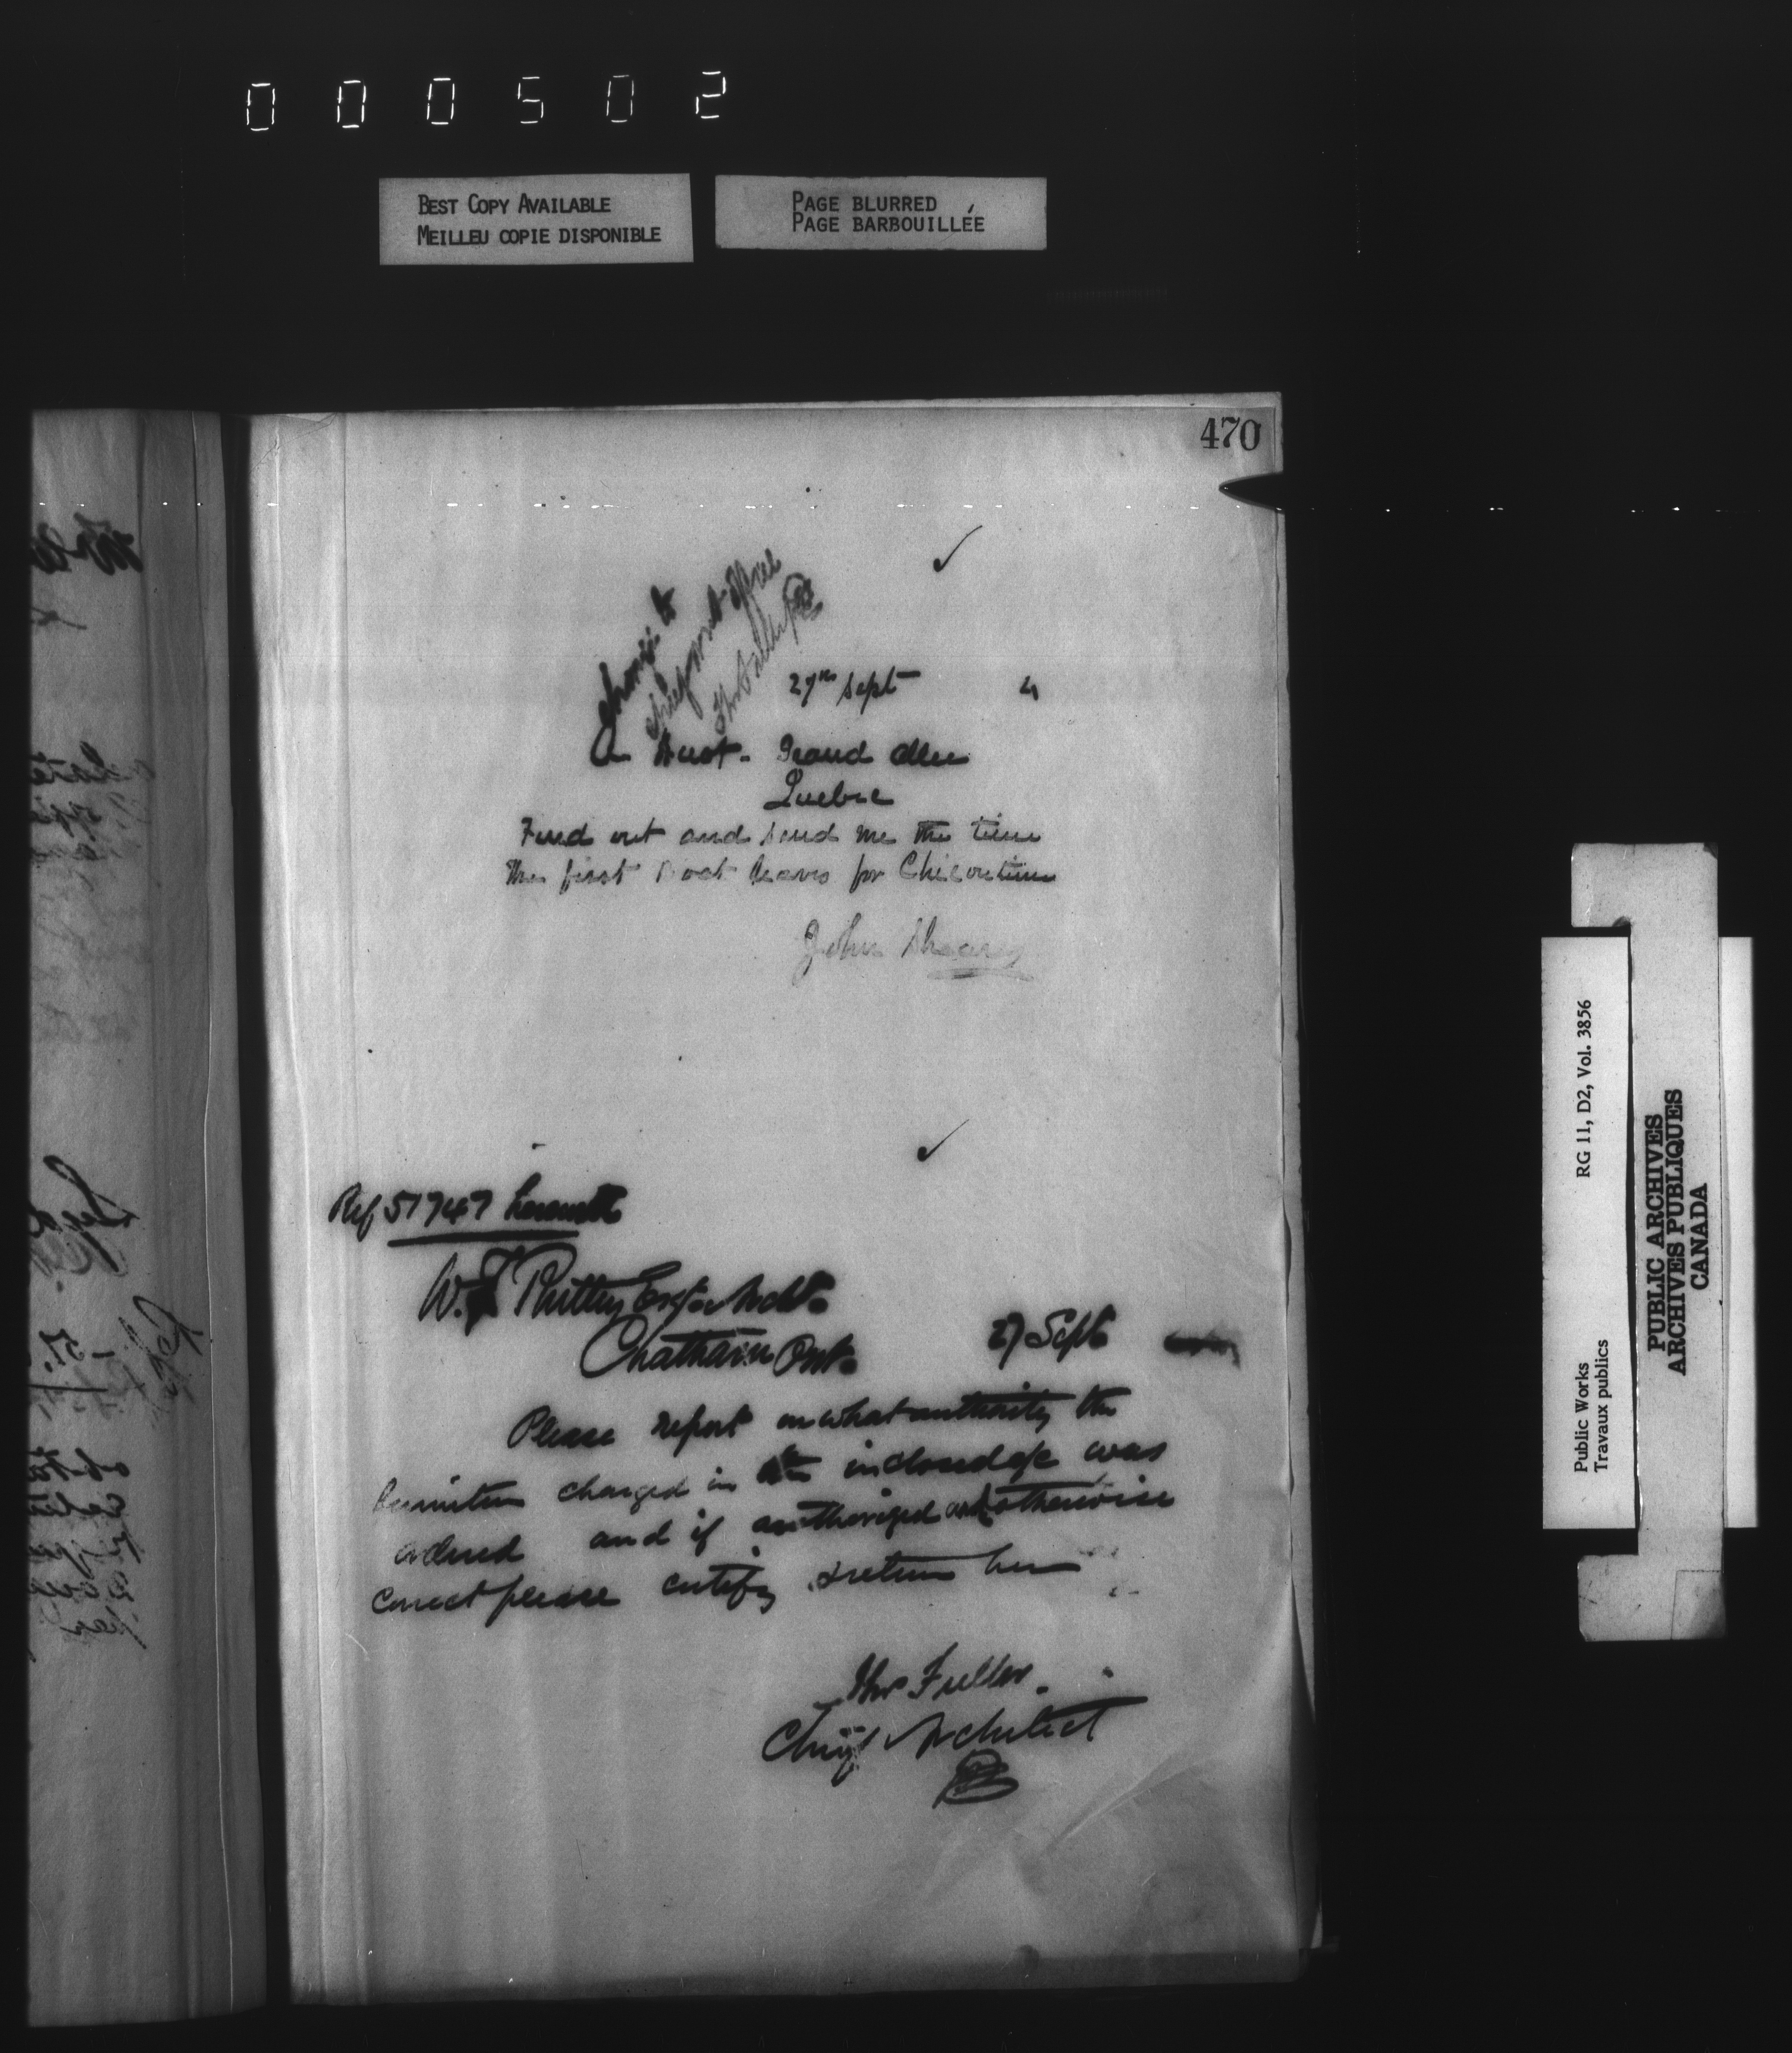 000502
BEST COPY AVAILABLE
MEILLEU COPIE DISPONIBLE
PAGE BLURRED
PAGE BARBOUILLÉE
470
Charge to
Chief Archt Office
Thos Fuller
27th Sept 4
Aust. Grand Allee
Quebec
Find out and send me the time
the first Boat leaves for Chicoutimi
John Shearer
Ref 51747
W. Esq. Archt.
Chatham Ont.
27 Sept
Please report on what authority the
furniture charged in the inclosed a/c was
ordered and if authorized and otherwise
correct please certify & return here
Thos Fuller.
Chief Architect
Public Works
Travaux publics
RG 11, D2, Vol. 3856
PUBLIC ARCHIVES
ARCHIVES PUBLIQUES
CANADA